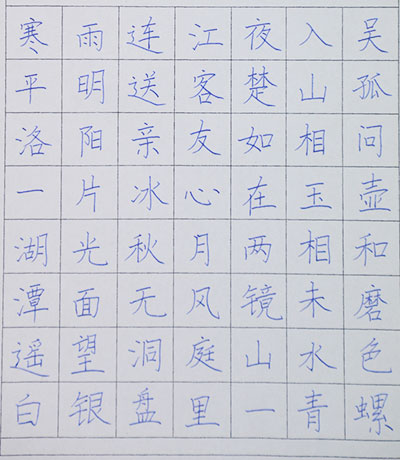 寒雨连江夜入吴
平明送客楚山孤
洛阳亲友如相问
一片冰心在玉壶
湖光秋月两相和
潭面无风镜未磨
遥望洞庭山水色
白银盘里一青螺